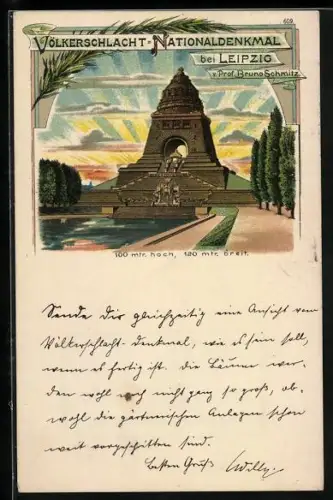 609
VÖLKERSCHLACHT-NATIONALDENKMAL
bei LEIPZIG
v. Prof. Bruno Schmitz
100 mtr. hoch, 120 mtr. breit.
Sende Dir gleichzeitig eine Ansicht vom
Völkerschlacht-Denkmal, wie es sein soll,
wenn es fertig ist. Die Bäume wer-
den wohl noch nicht ganz so groß, ob-
wohl die gärtnerischen Anlagen schon
weit vorgeschritten sind.
Besten Gruß Willy.